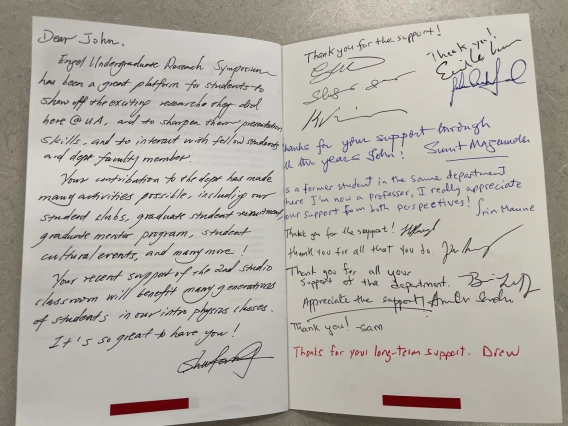 Dear John,
Engel Undergraduate Research Symposium
has been a great platform for students to
show off the exciting researche they did
here @ UA, and to sharpen their presentation
skills, and to interact with fellow students
and dept faculty member.
Your contribution to the dept has made
many activities possible, including our
student clubs, graduate student recruitment,
graduate mentor program, student
cultural events, and many more!
Your recent support of the 2nd studio
classroom will benefit many generations
of students in our intro physics classes.
It's so great to have you!
Thank you for the support!
Thank you!
thanks for your support through
all the years John! Sumit Mazumdar
As a former student in the same department
where I'm now a professor, I really appreciate
your support from both perspectives! Srin Manne
Thank you for the support!
thank you for all that you do
Thank you for all your
support of the department.
Appreciate the support!
Thank you! -Sam
Thanks for your long-term support. Drew